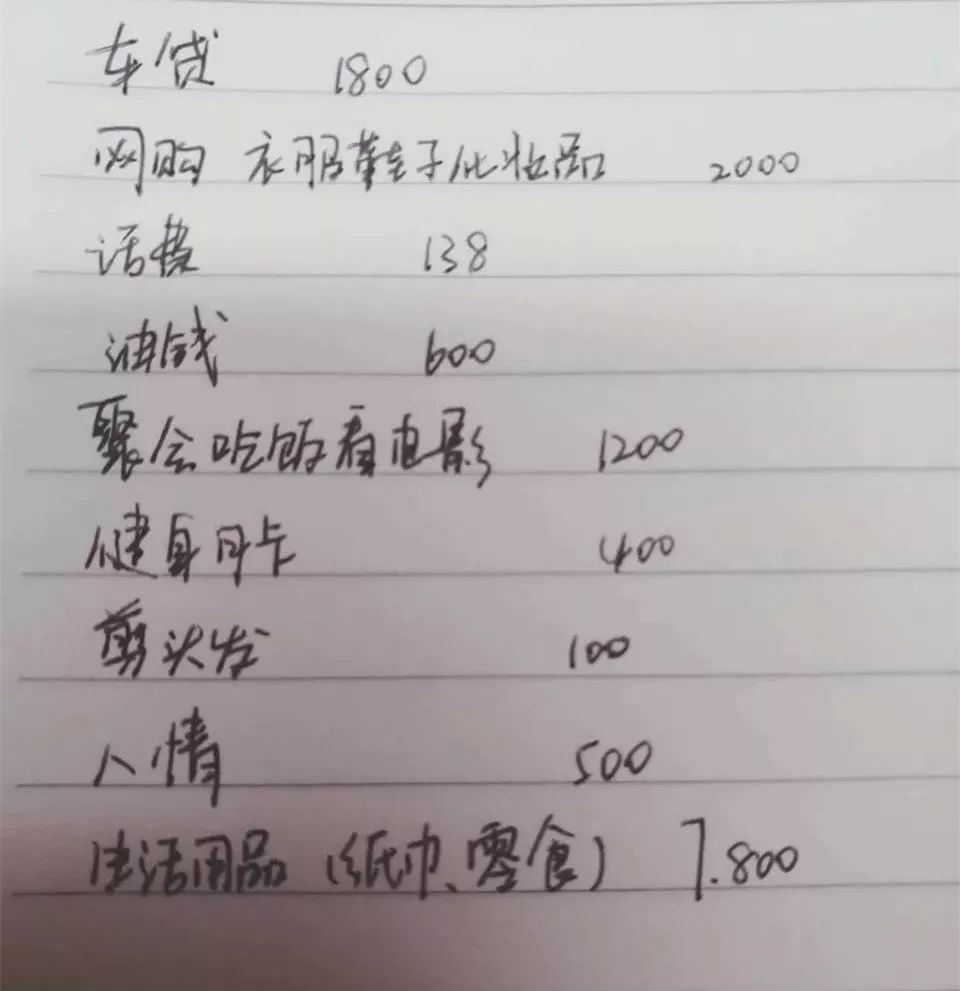 车贷 1800
网购 衣服鞋子化妆品 2000
话费 138
油钱 600
聚会吃饭看电影 1200
健身月卡 400
剪头发 100
人情 500
生活用品(纸巾、零食) 7.800